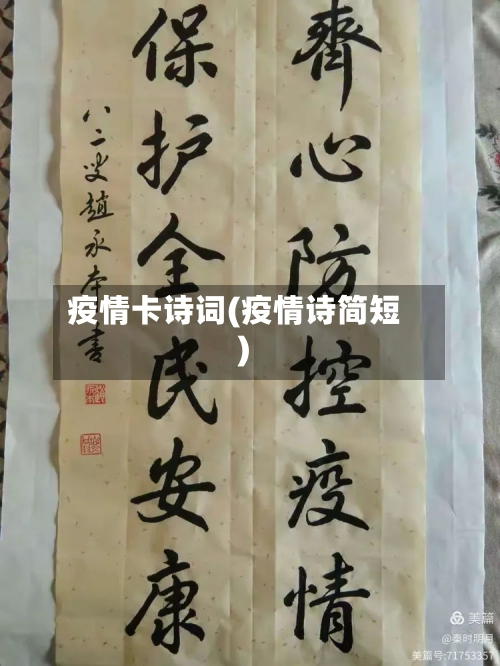 齊心防控疫情
保护全民安康
八二叟趙永
書
疫情卡诗词(疫情诗简短
)
美篇
@秦时明月
美篇号:71753357